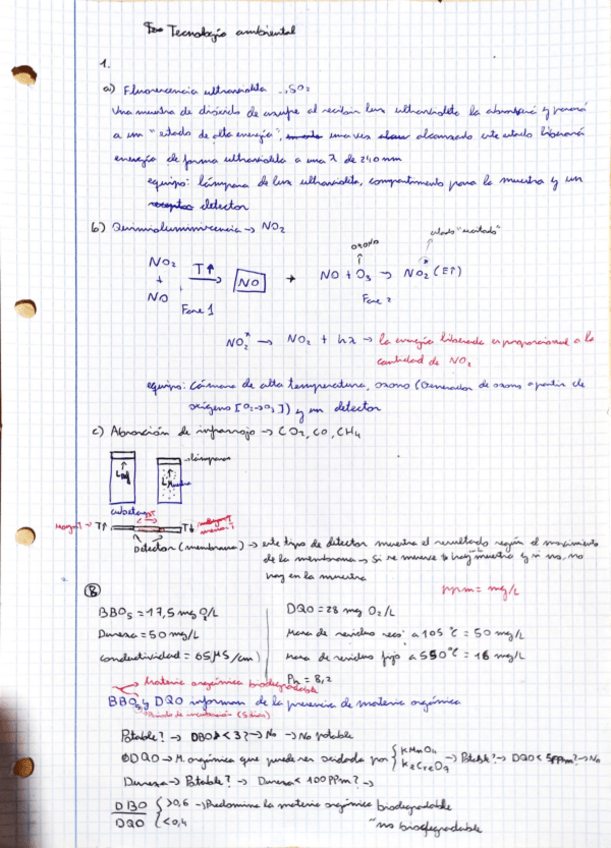 Tecnología ambiental
1.
a) Fluorescencia ultravioleta SO2
Una muestra de dióxido de azufre al recibir luz ultravioleta la absorberá y pasará
a un "estado de alta energía", una vez alcanzado este estado liberará
energía de forma ultravioleta a una λ de 240 nm
equipo: lámpara de luz ultravioleta, compartimento para la muestra y un
detector
b) Quimioluminiscencia → NO2
estado "excitado"
ozono
NO2 + NO T↑ → NO → NO + O3 → NO2* (E↑)
Fase 1 Fase 2
NO2* → NO2 + hλ → la energía liberada es proporcional a la
cantidad de NO2
equipo: Cámara de alta temperatura, ozono (Generador de ozono a partir de
oxígeno [O2→O3]) y un detector
c) Absorción de infrarrojo → CO2, CO, CH4
lámparas
Muestra
cubetas
Mayor T → T↑ T↓ menor T
Detector (membrana) → este tipo de detector muestra el resultado según el movimiento
de la membrana → Si se mueve hay muestra y si no, no
hay en la muestra
B
ppm = mg/L
BBO5 = 17,5 mg O2/L
Dureza = 50 mg/L
Conductividad = 65 μS/cm)
DQO = 28 mg O2/L
Masa de residuo seco a 105 °C = 50 mg/L
Masa de residuo fijo a 550 °C = 16 mg/L
Ph = 8,2
Materia orgánica biodegradable
BBO5 y DQO informan de la presencia de materia orgánica
(5 días)
Potable? → DBO5 < 3? → No → No potable
DQO → M. orgánica que puede ser oxidada por { KMnO4 K2Cr2O7 → Potable? → DQO < 5ppm? → No
Dureza → Potable? → Dureza < 100 PPm? →
DBO / DQO { >0,6 → Predomina la materia orgánica biodegradable
<0,4 no biodegradable